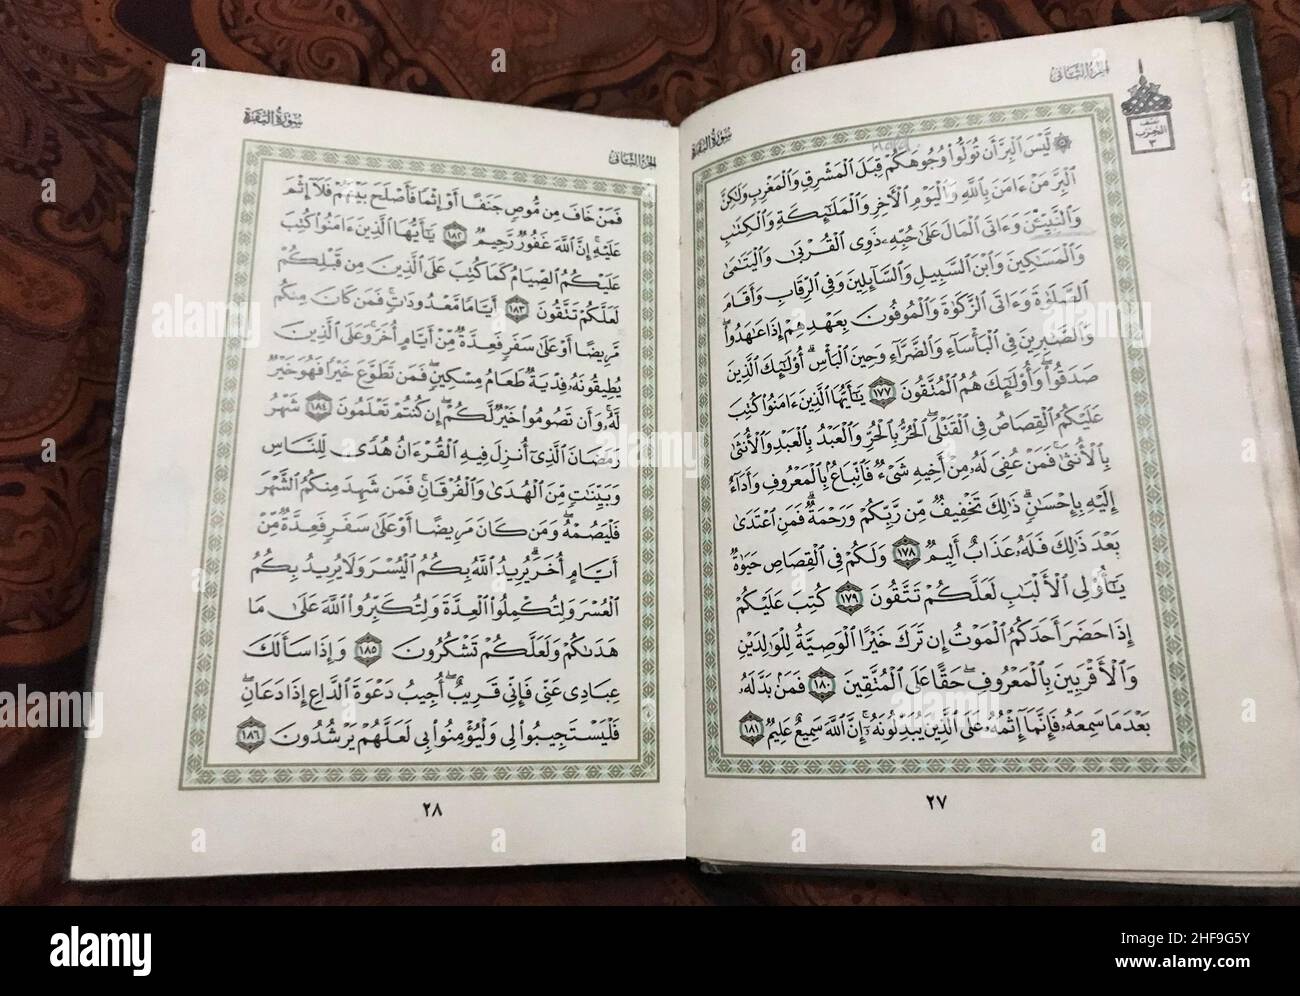 الجزء الثاني
سورة البقرة
نصف
الحزب
٣
۞ لَّيْسَ ٱلْبِرَّ أَن تُوَلُّوا۟ وُجُوهَكُمْ قِبَلَ ٱلْمَشْرِقِ وَٱلْمَغْرِبِ وَلَٰكِنَّ
ٱلْبِرَّ مَنْ ءَامَنَ بِٱللَّهِ وَٱلْيَوْمِ ٱلْءَاخِرِ وَٱلْمَلَٰٓئِكَةِ وَٱلْكِتَٰبِ
وَٱلنَّبِيِّۦنَ وَءَاتَى ٱلْمَالَ عَلَىٰ حُبِّهِۦ ذَوِى ٱلْقُرْبَىٰ وَٱلْيَتَٰمَىٰ
وَٱلْمَسَٰكِينَ وَٱبْنَ ٱلسَّبِيلِ وَٱلسَّآئِلِينَ وَفِى ٱلرِّقَابِ وَأَقَامَ
ٱلصَّلَوٰةَ وَءَاتَى ٱلزَّكَوٰةَ وَٱلْمُوفُونَ بِعَهْدِهِمْ إِذَا عَٰهَدُوا۟ ۖ
وَٱلصَّٰبِرِينَ فِى ٱلْبَأْسَآءِ وَٱلضَّرَّآءِ وَحِينَ ٱلْبَأْسِ ۗ أُو۟لَٰٓئِكَ ٱلَّذِينَ
صَدَقُوا۟ ۖ وَأُو۟لَٰٓئِكَ هُمُ ٱلْمُتَّقُونَ ١٧٧ يَٰٓأَيُّهَا ٱلَّذِينَ ءَامَنُوا۟ كُتِبَ
عَلَيْكُمُ ٱلْقِصَاصُ فِى ٱلْقَتْلَى ۖ ٱلْحُرُّ بِٱلْحُرِّ وَٱلْعَبْدُ بِٱلْعَبْدِ وَٱلْأُنثَىٰ
بِٱلْأُنثَىٰ ۚ فَمَنْ عُفِىَ لَهُۥ مِنْ أَخِيهِ شَىْءٌ فَٱتِّبَاعٌۢ بِٱلْمَعْرُوفِ وَأَدَآءٌ
إِلَيْهِ بِإِحْسَٰنٍ ۗ ذَٰلِكَ تَخْفِيفٌ مِّن رَّبِّكُمْ وَرَحْمَةٌ ۗ فَمَنِ ٱعْتَدَىٰ
بَعْدَ ذَٰلِكَ فَلَهُۥ عَذَابٌ أَلِيمٌ ١٧٨ وَلَكُمْ فِى ٱلْقِصَاصِ حَيَوٰةٌ
يَٰٓأُو۟لِى ٱلْأَلْبَٰبِ لَعَلَّكُمْ تَتَّقُونَ ١٧٩ كُتِبَ عَلَيْكُمْ
إِذَا حَضَرَ أَحَدَكُمُ ٱلْمَوْتُ إِن تَرَكَ خَيْرًا ٱلْوَصِيَّةُ لِلْوَٰلِدَيْنِ
وَٱلْأَقْرَبِينَ بِٱلْمَعْرُوفِ ۖ حَقًّا عَلَى ٱلْمُتَّقِينَ ١٨٠ فَمَنۢ بَدَّلَهُۥ
بَعْدَ مَا سَمِعَهُۥ فَإِنَّمَآ إِثْمُهُۥ عَلَى ٱلَّذِينَ يُبَدِّلُونَهُۥٓ ۚ إِنَّ ٱللَّهَ سَمِيعٌ عَلِيمٌ ١٨١
٢٧
الجزء الثاني
سورة البقرة
فَمَنْ خَافَ مِن مُّوصٍ جَنَفًا أَوْ إِثْمًا فَأَصْلَحَ بَيْنَهُمْ فَلَآ إِثْمَ
عَلَيْهِ ۚ إِنَّ ٱللَّهَ غَفُورٌ رَّحِيمٌ ١٨٢ يَٰٓأَيُّهَا ٱلَّذِينَ ءَامَنُوا۟ كُتِبَ
عَلَيْكُمُ ٱلصِّيَامُ كَمَا كُتِبَ عَلَى ٱلَّذِينَ مِن قَبْلِكُمْ
لَعَلَّكُمْ تَتَّقُونَ ١٨٣ أَيَّامًا مَّعْدُودَٰتٍ ۚ فَمَن كَانَ مِنكُم
مَّرِيضًا أَوْ عَلَىٰ سَفَرٍ فَعِدَّةٌ مِّنْ أَيَّامٍ أُخَرَ ۚ وَعَلَى ٱلَّذِينَ
يُطِيقُونَهُۥ فِدْيَةٌ طَعَامُ مِسْكِينٍ ۖ فَمَن تَطَوَّعَ خَيْرًا فَهُوَ خَيْرٌ
لَّهُۥ ۚ وَأَن تَصُومُوا۟ خَيْرٌ لَّكُمْ ۖ إِن كُنتُمْ تَعْلَمُونَ ١٨٤ شَهْرُ
رَمَضَانَ ٱلَّذِىٓ أُنزِلَ فِيهِ ٱلْقُرْءَانُ هُدًى لِّلنَّاسِ
وَبَيِّنَٰتٍ مِّنَ ٱلْهُدَىٰ وَٱلْفُرْقَانِ ۚ فَمَن شَهِدَ مِنكُمُ ٱلشَّهْرَ
فَلْيَصُمْهُ ۖ وَمَن كَانَ مَرِيضًا أَوْ عَلَىٰ سَفَرٍ فَعِدَّةٌ مِّنْ
أَيَّامٍ أُخَرَ ۗ يُرِيدُ ٱللَّهُ بِكُمُ ٱلْيُسْرَ وَلَا يُرِيدُ بِكُمُ
ٱلْعُسْرَ وَلِتُكْمِلُوا۟ ٱلْعِدَّةَ وَلِتُكَبِّرُوا۟ ٱللَّهَ عَلَىٰ مَا
هَدَىٰكُمْ وَلَعَلَّكُمْ تَشْكُرُونَ ١٨٥ وَإِذَا سَأَلَكَ
عِبَادِى عَنِّى فَإِنِّى قَرِيبٌ ۖ أُجِيبُ دَعْوَةَ ٱلدَّاعِ إِذَا دَعَانِ ۖ
فَلْيَسْتَجِيبُوا۟ لِى وَلْيُؤْمِنُوا۟ بِى لَعَلَّهُمْ يَرْشُدُونَ ١٨٦
٢٨
alamy
Image ID: 2HF9G5Y
www.alamy.com